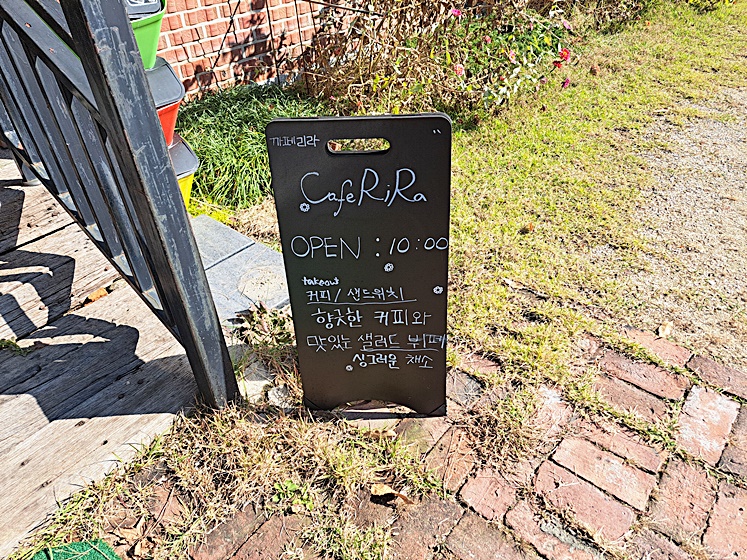 까페리라
Cafe RiRa
OPEN : 10:00
takeout
커피 / 샌드위치
향긋한 커피와
맛있는 샐러드 뷔페
싱그러운 채소